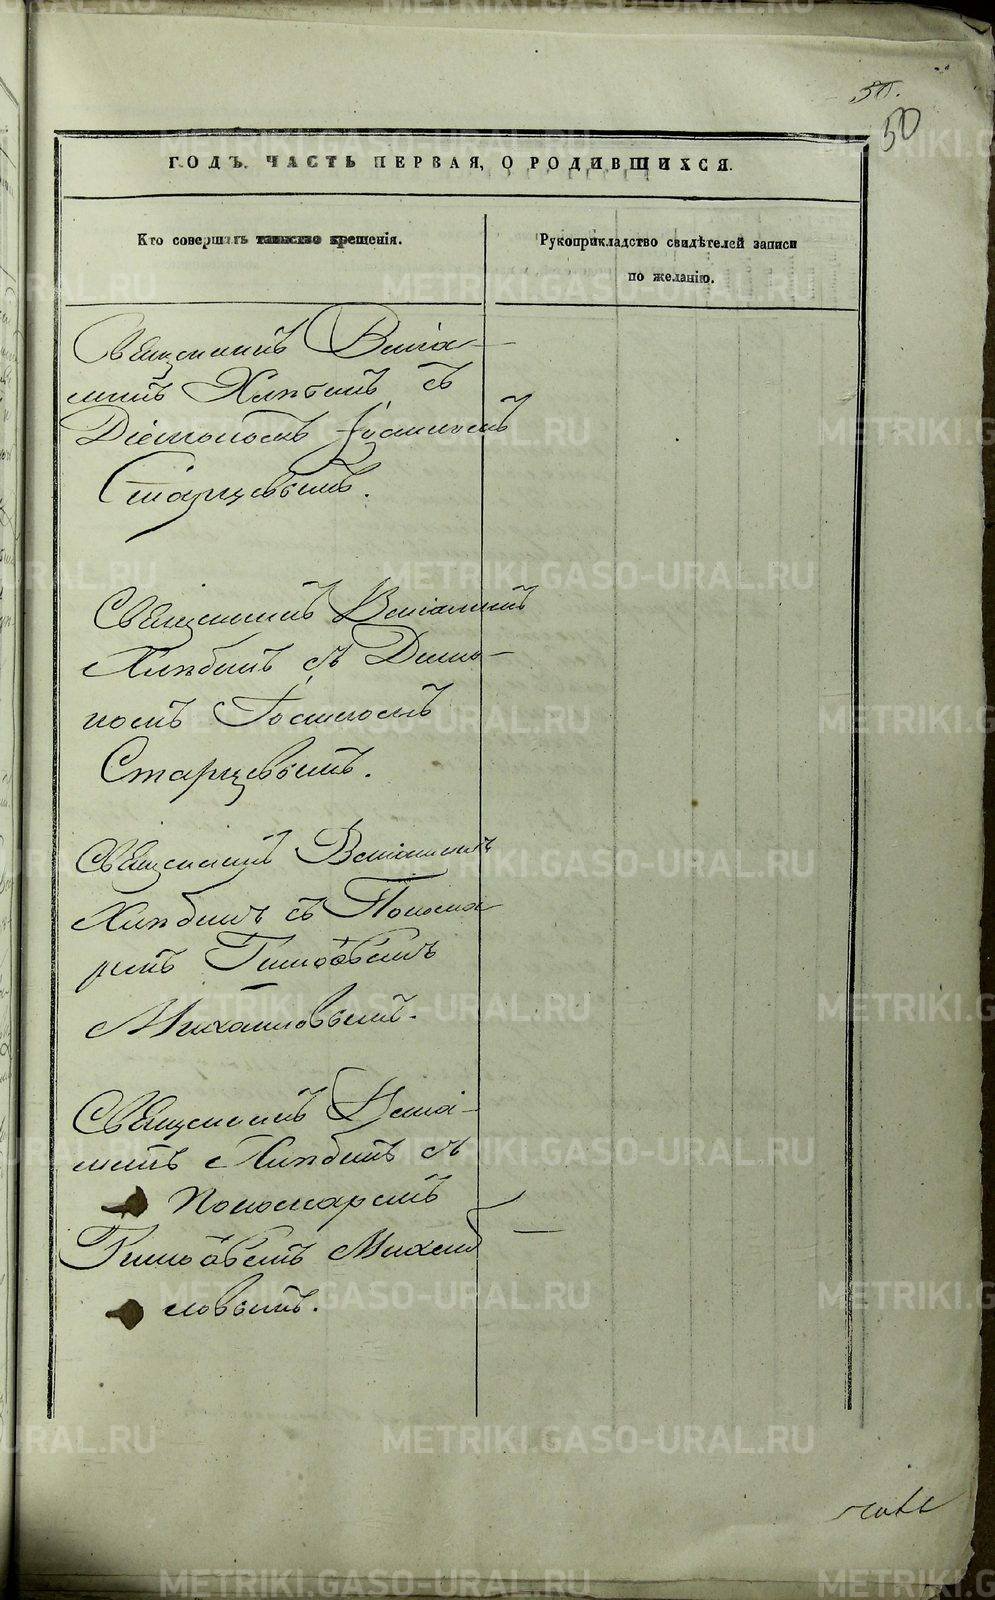 50.
50
ГОДЪ. ЧАСТЬ ПЕРВАЯ, О РОДИВШИХСЯ.
Кто совершалъ таинство крещенія.
Рукоприкладство свидѣтелей записи
по желанію.
Священникъ Веніа-
минъ Хлѣбинъ съ
Діакономъ Іоанномъ
Старцевымъ.
Священникъ Веніаминъ
Хлѣбинъ съ Діако-
номъ Іоанномъ
Старцевымъ.
Священникъ Веніаминъ
Хлѣбинъ съ Понома
ремъ
Михайловымъ.
Священникъ Веніа-
минъ Хлѣбинъ съ
Пономаремъ
Михай
ловымъ.
METRIKI.GASO-URAL.RU